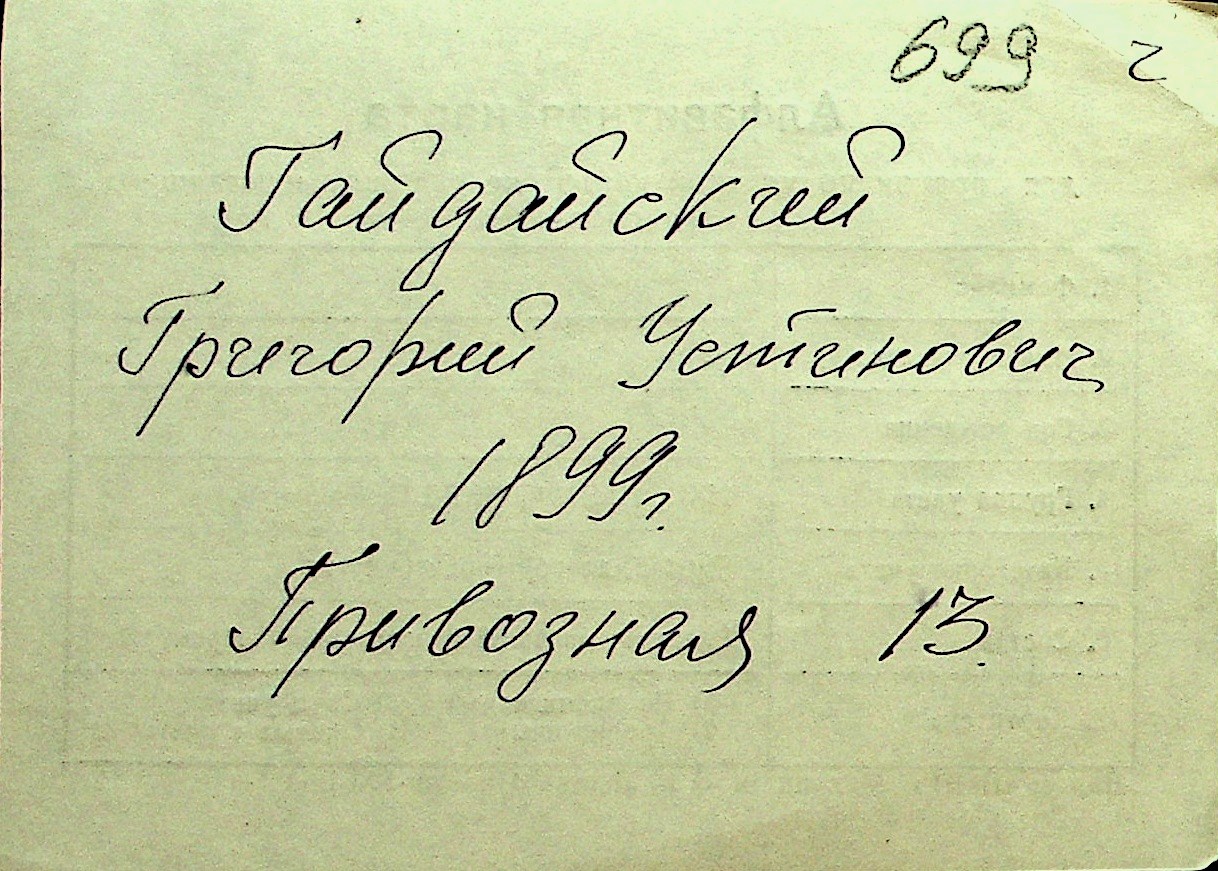 699 г
Гайдайский
Григорий Устинович
1899г.
Привозная 13.